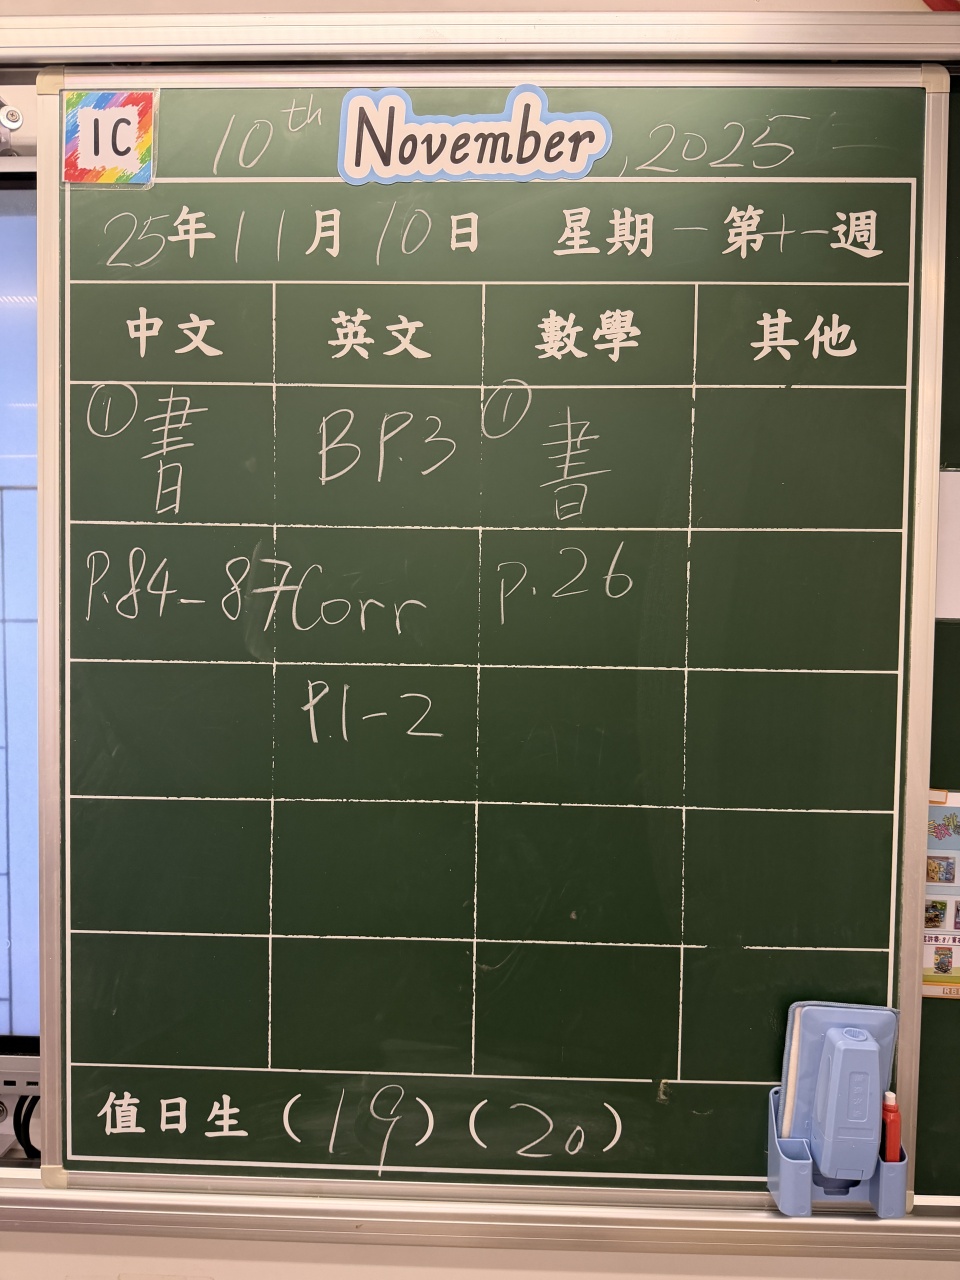 1C
10th November, 2025
25年11月10日 星期一 第十一週
中文 英文 數學 其他
① 書 BP.3 ① 書
P.84-87 Corr p.26
P.1-2
值日生 (19) (20)